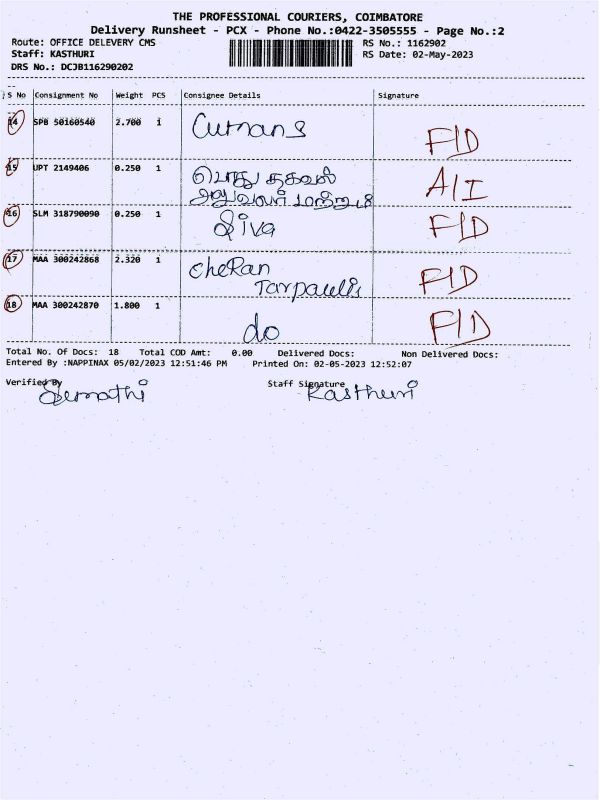 THE PROFESSIONAL COURIERS, COIMBATORE
Delivery Runsheet - PCX - Phone No.:0422-3505555 - Page No.:2
Route: OFFICE DELEVERY CMS
RS No.: 1162902
Staff: KASTHURI
RS Date: 02-May-2023
DRS No.: DCJB116290202
S No Consignment No Weight PCS Consignee Details Signature
14 SPB 50160540 2.700 1 F/D
15 UPT 2149406 0.250 1 பொது தகவல் A/I
அலுவலர் மற்றும்
16 SLM 318790090 0.250 1 Siva F/D
17 MAA 300242868 2.320 1 cheRan F/D
Tarpaulis
18 MAA 300242870 1.800 1 do F/D
Total No. Of Docs: 18 Total COD Amt: 0.00 Delivered Docs: Non Delivered Docs:
Entered By :NAPPINAX 05/02/2023 12:51:46 PM Printed On: 02-05-2023 12:52:07
Verified By Staff Signature
Sumathi Kasthuri